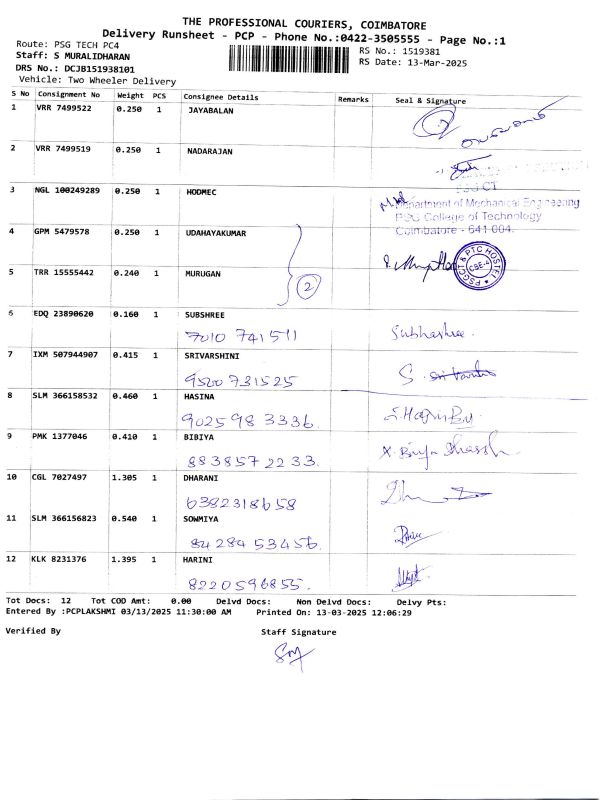 THE PROFESSIONAL COURIERS, COIMBATORE
Delivery Runsheet - PCP - Phone No.:0422-3505555 - Page No.:1
Route: PSG TECH PC4
RS No.: 1519381
Staff: S MURALIDHARAN
RS Date: 13-Mar-2025
DRS No.: DCJB151938101
Vehicle: Two Wheeler Delivery
S No Consignment No Weight PCS Consignee Details Remarks Seal & Signature
1 VRR 7499522 0.250 1 JAYABALAN
2 VRR 7499519 0.250 1 NADARAJAN
PSG CT
3 NGL 100249289 0.250 1 HODMEC
Department of Mechanical Engineering
PSG College of Technology
Coimbatore - 641 004.
4 GPM 5479578 0.250 1 UDAHAYAKUMAR
PSGCT & PTC HOSTEL
CBE-4
5 TRR 15555442 0.240 1 MURUGAN
2
6 EDQ 23890620 0.160 1 SUBSHREE
7010 741 511 Subhashree.
7 IXM 507944907 0.415 1 SRIVARSHINI
9500 731525
8 SLM 366158532 0.460 1 HASINA
902598 3336.
9 PMK 1377046 0.410 1 BIBIYA
883857 2233.
10 CGL 7027497 1.305 1 DHARANI
6382318658
11 SLM 366156823 0.540 1 SOWMIYA
84284 53456.
12 KLK 8231376 1.395 1 HARINI
8220596855.
Tot Docs: 12 Tot COD Amt: 0.00 Delvd Docs: Non Delvd Docs: Delvy Pts:
Entered By :PCPLAKSHMI 03/13/2025 11:30:00 AM Printed On: 13-03-2025 12:06:29
Verified By Staff Signature